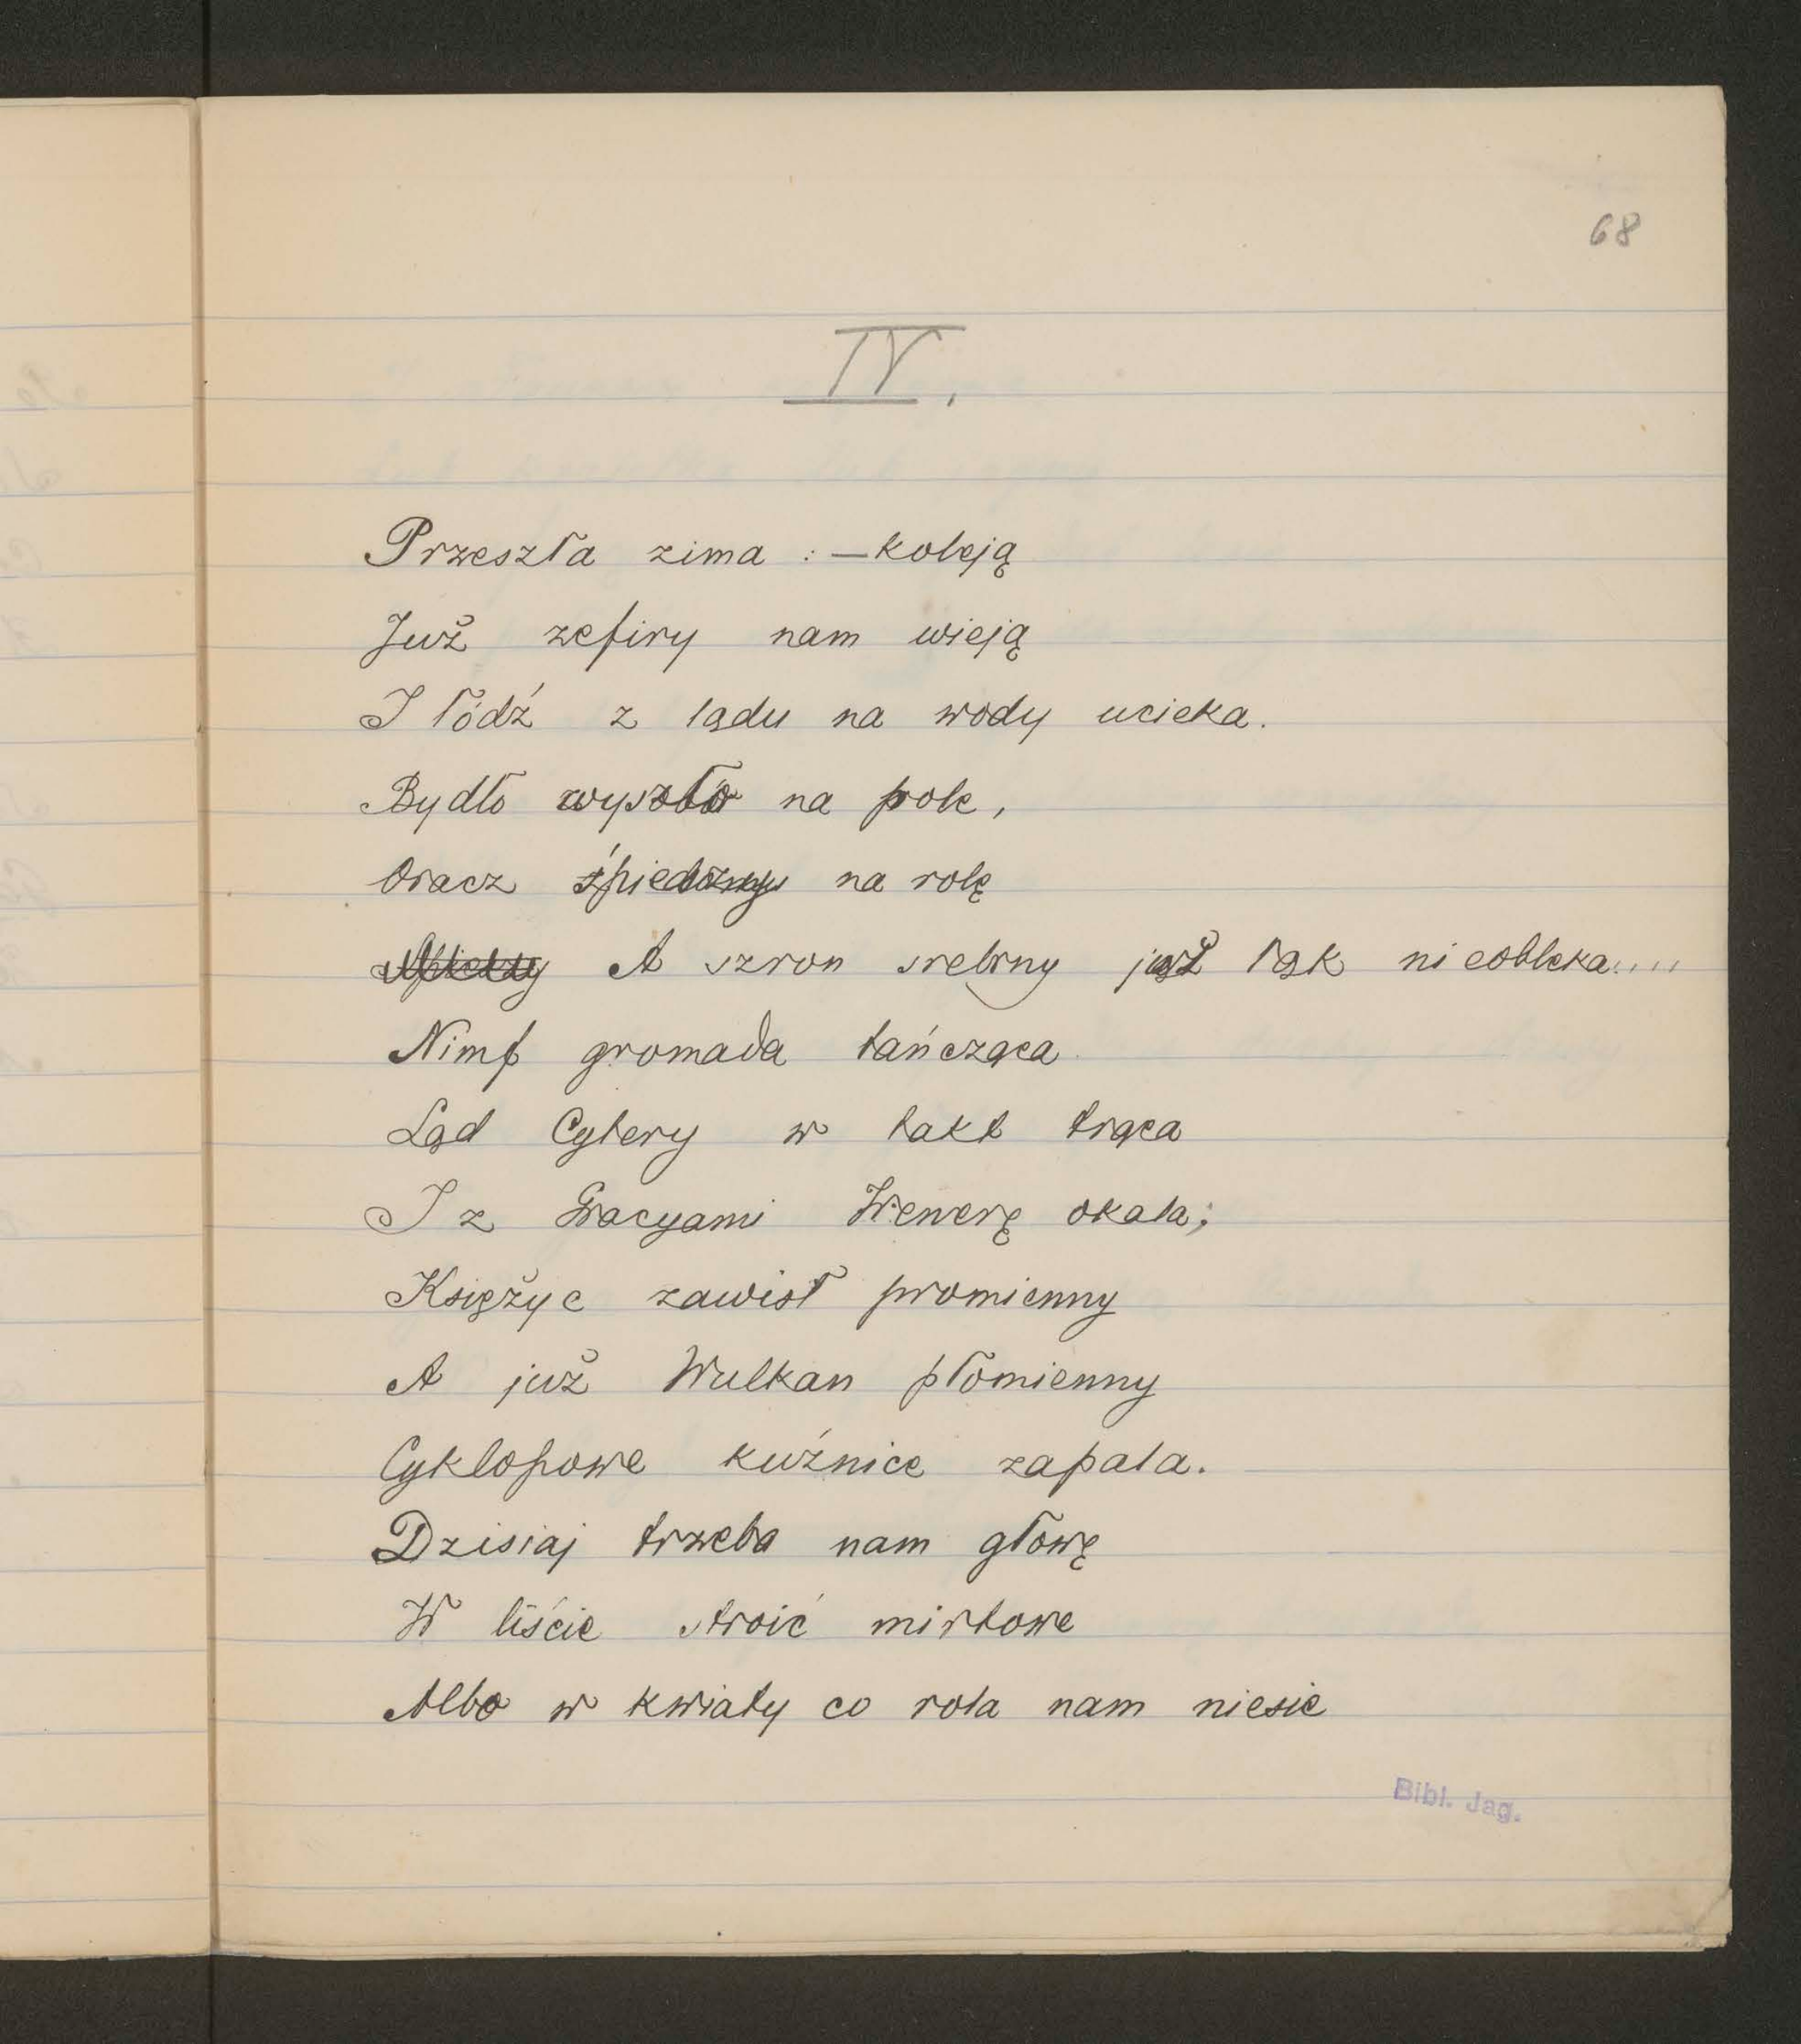 68
IV.
Przeszła zima : — koleją
Już zefiry nam wieją
I łódź z lądu na wody ucieka.
Bydło wyszło na pole,
Oracz na rolę
A szron srebrny już łąk nieobleka....
Nimf gromada tańcząca
Ląd Cytery w takt trąca
I z Gracyami Wenerę okala;
Księżyc zawisł promienny
A już Wulkan płomienny
Cyklopowe kuźnice zapala.
Dzisiaj trzeba nam głowę
W liście stroić mirtowe
Albo w kwiaty co rola nam niesie
Bibl. Jag.